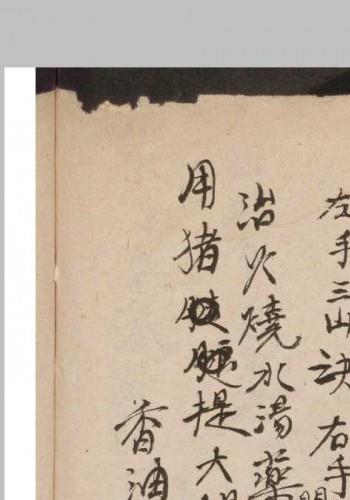 左手三山訣右手
治火燒水湯藥
用猪
提大
香油